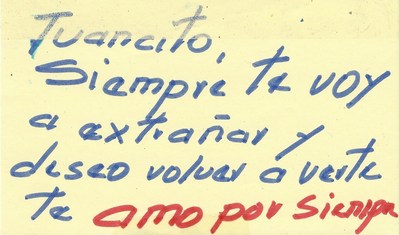 Juancito,
Siempre te voy
a extrañar y
deseo volver a verte
te amo por siempre